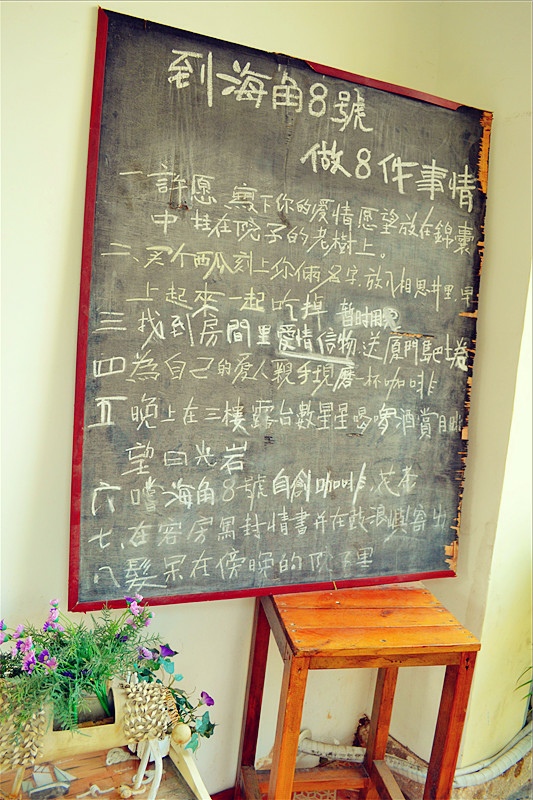 到海角8號
做8件事情
一 許愿 寫下你的爱情愿望放在錦囊
中 挂在院子的老樹上。
二、买个西瓜刻上你倆名字.放入相思井里.早
上起來一起吃掉 暂时用完
三 找到房間里爱情信物送廈門
四 為自己的爱人親手現磨一杯咖啡
五 晚上在三樓露台數星星喝啤酒賞月
望日光岩
六 嚐海角8號自創咖啡、花茶
七、在客房寫封情書并在鼓浪嶼寄出
八 髮呆在傍晚的院子里